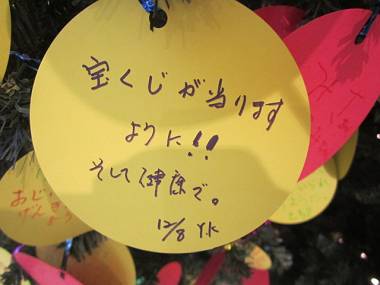 宝くじが当ります
ように!!
そして健康で。
12/8 Y.K
おじ
げんき